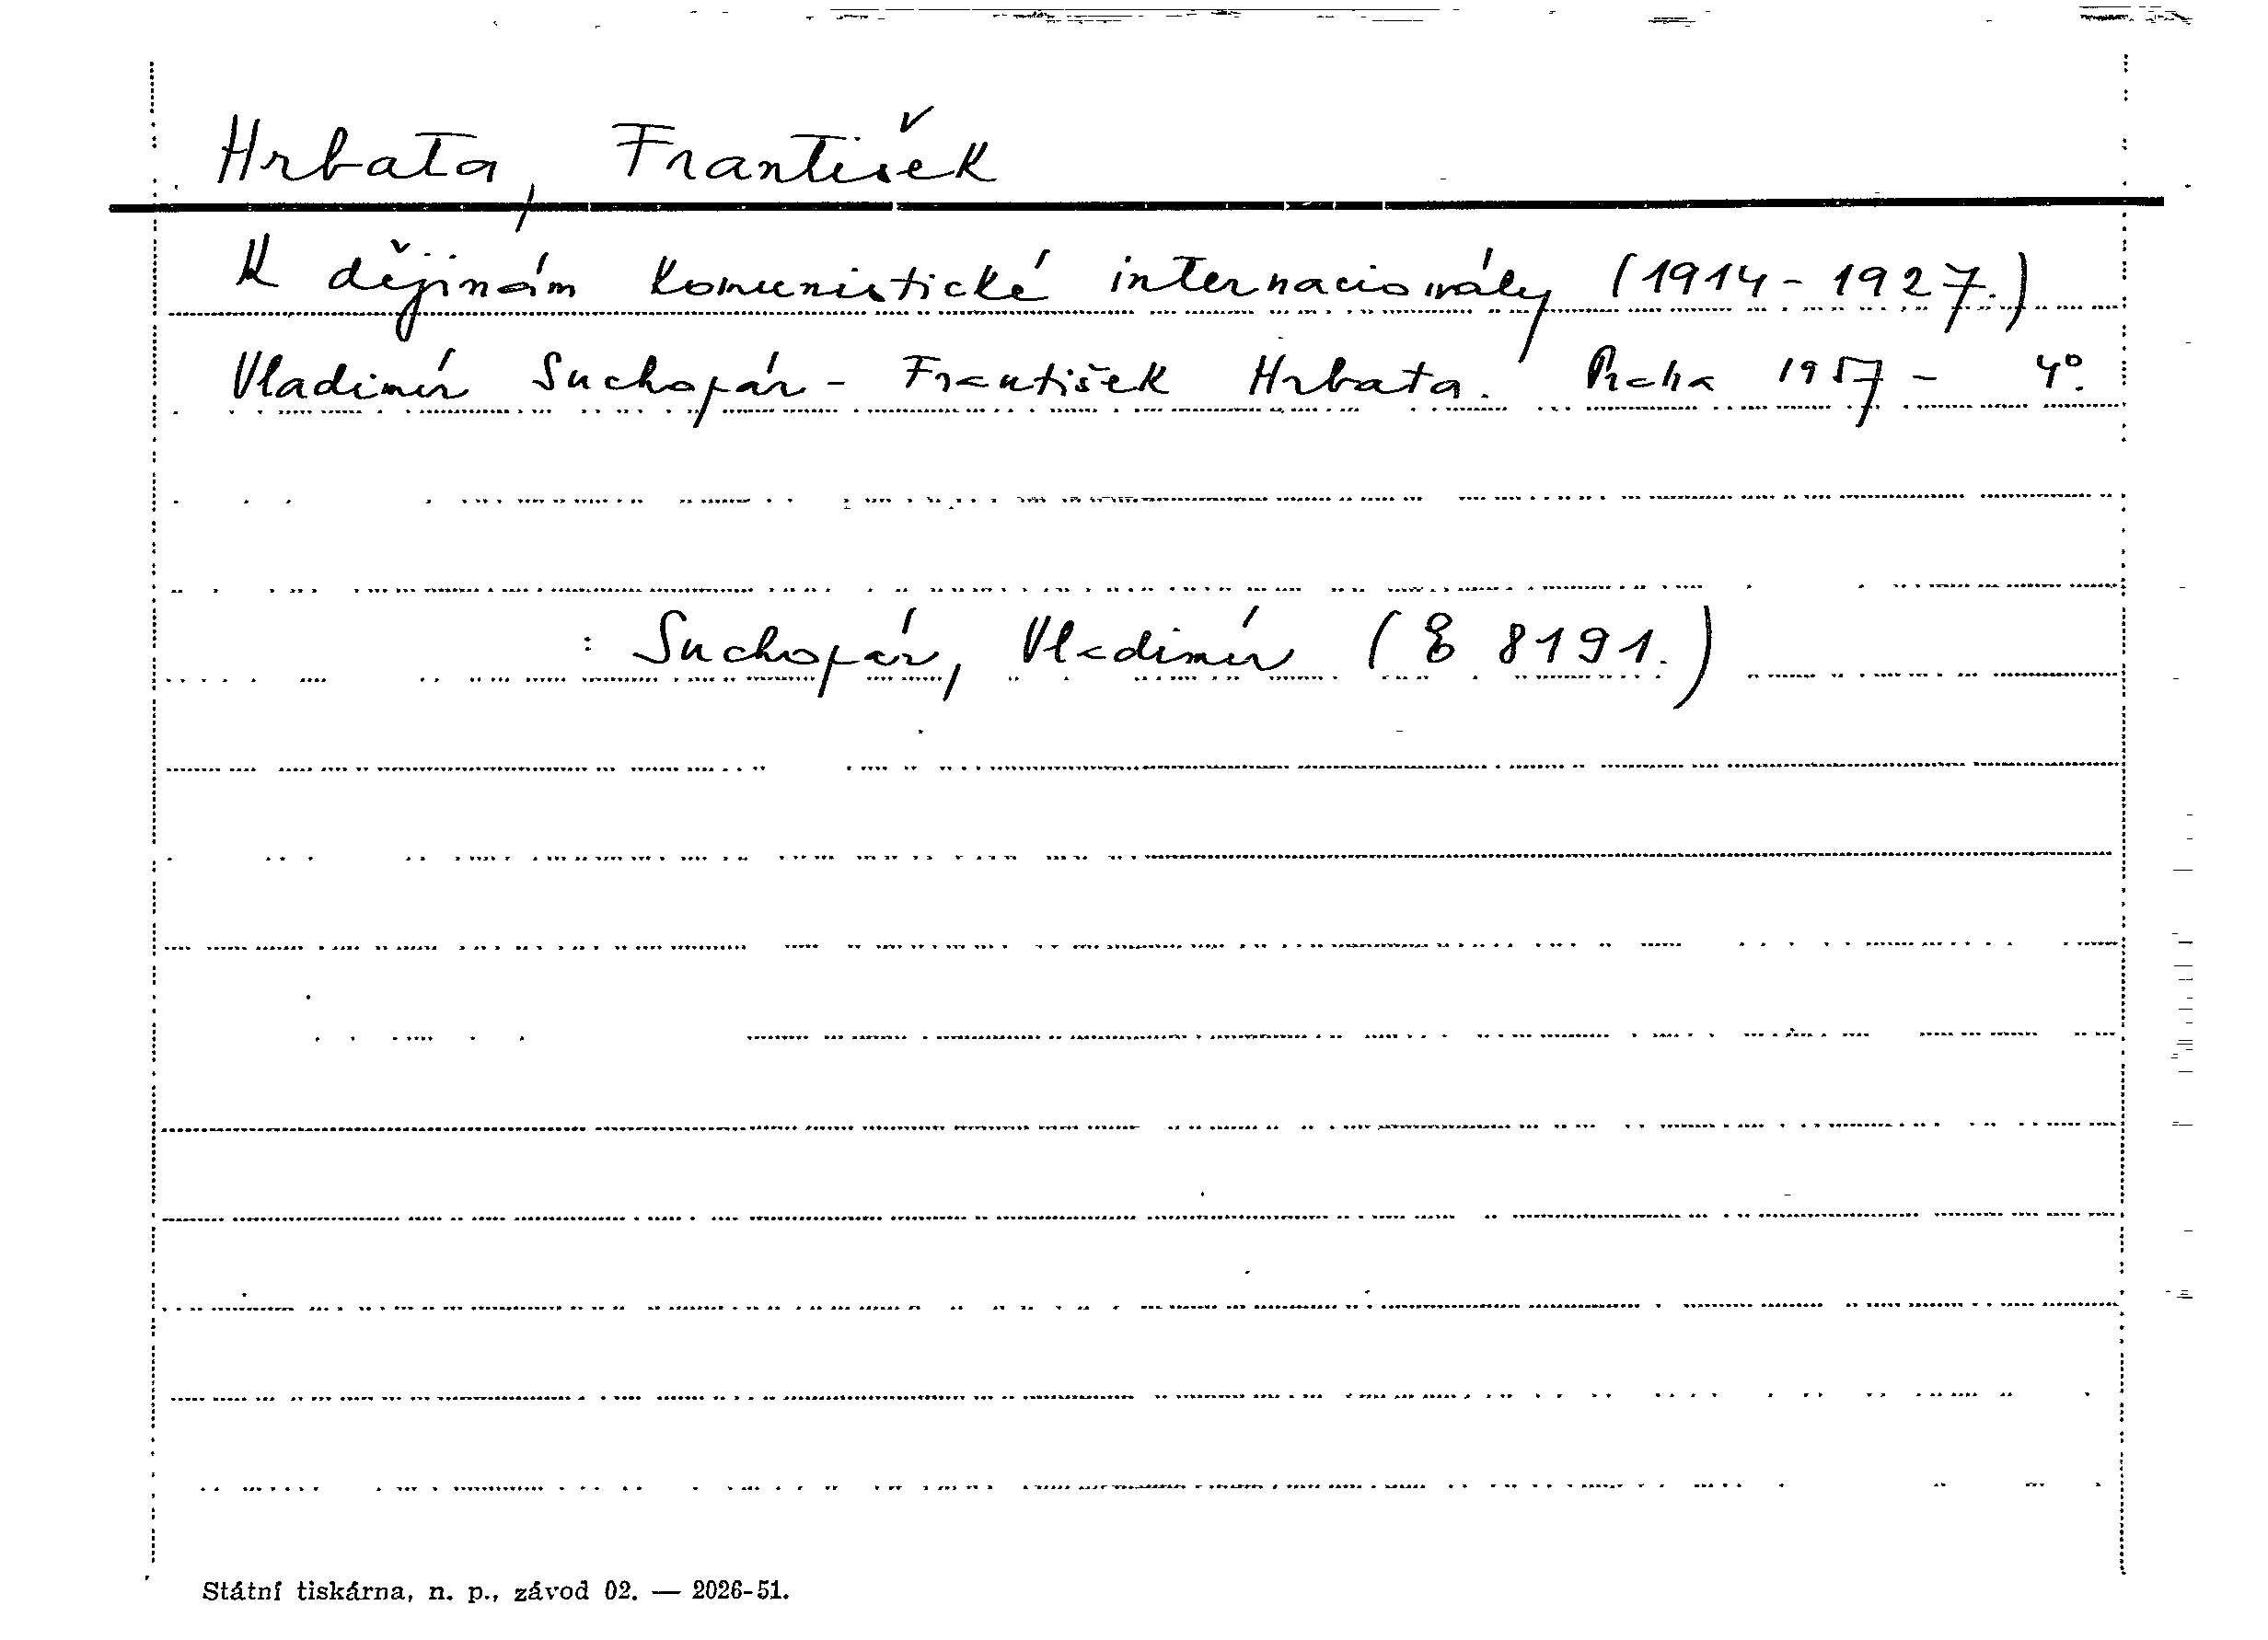 Hrbata, František
K dějinám Komunistické internacionály (1914-1927.)
Vladimír Suchopár - František Hrbata. Praha 1957 - 4°.
: Suchopár, Vladimír (E 8191.)
Státní tiskárna, n. p., závod 02. — 2026-51.